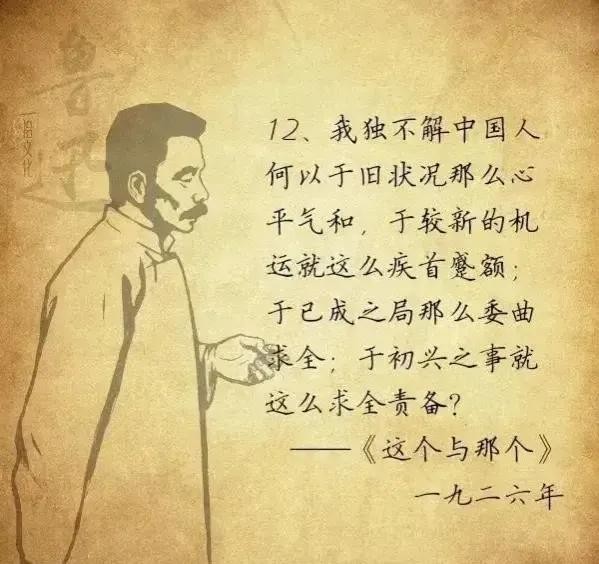 鲁迅
拾文化
12、我独不解中国人
何以于旧状况那么心
平气和，于较新的机
运就这么疾首蹙额；
于已成之局那么委曲
求全；于初兴之事就
这么求全责备？
——《这个与那个》
一九二六年